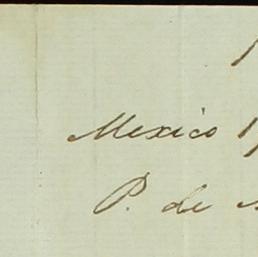 Mexico
P. de